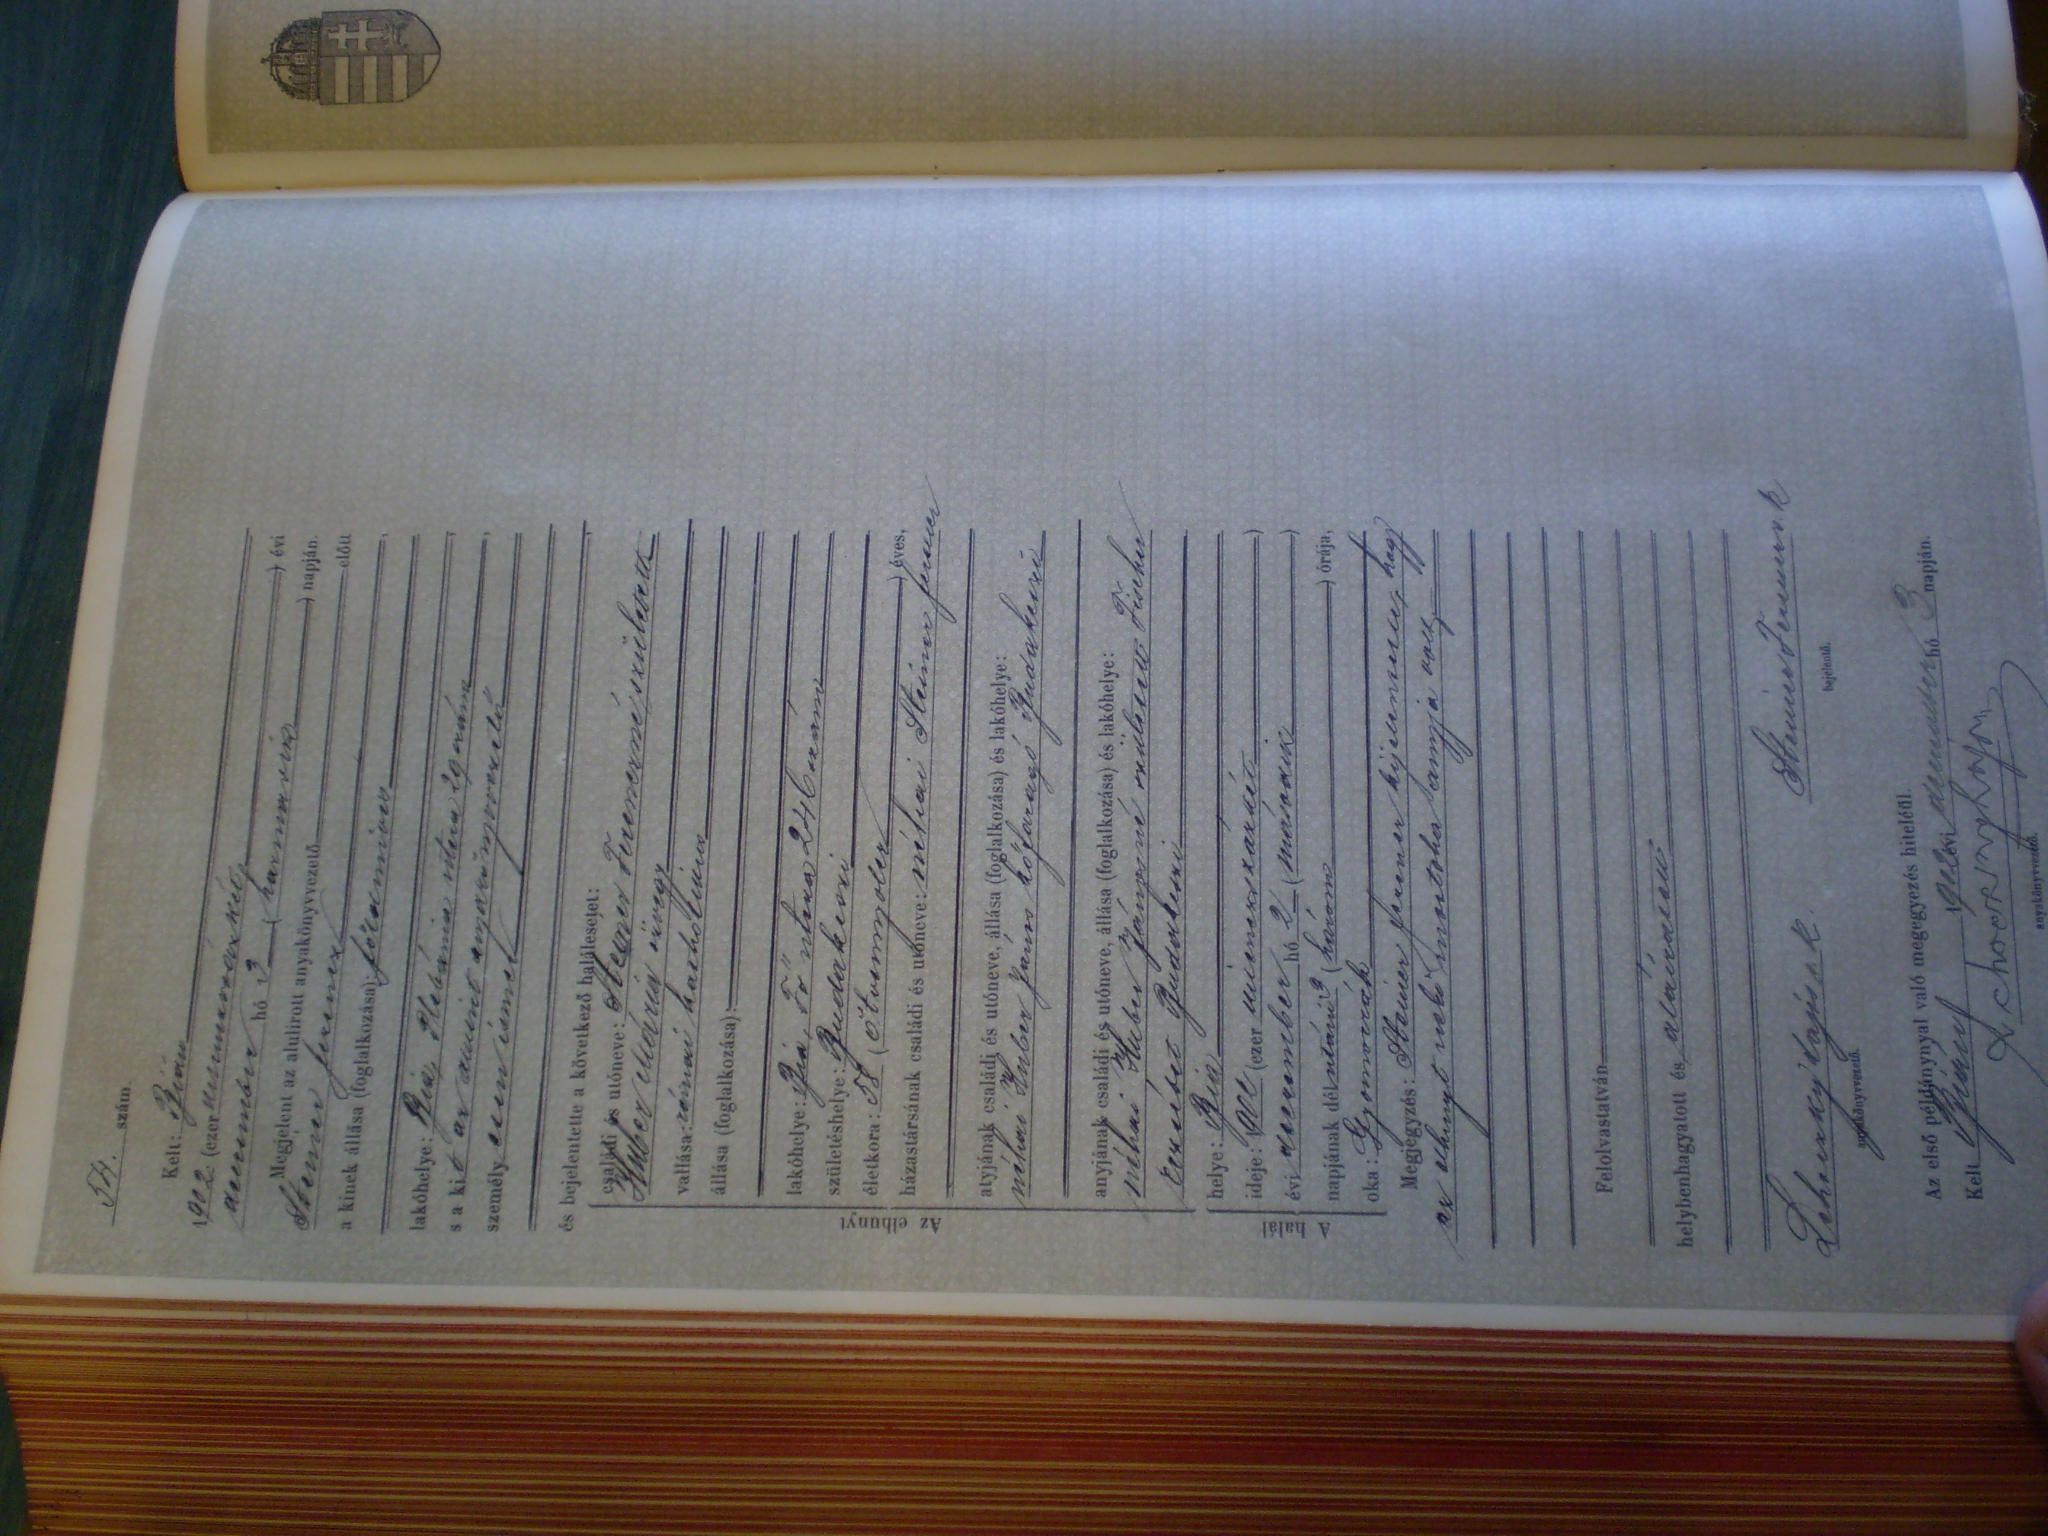 54. szám.
Kelt: Bián
1902 (ezer kilenczszázkét
deczember hó 3 (harmadik) évi napján.
Megjelent az alulirott anyakönyvezető előtt
Steiner Ferencz
a kinek állása (foglalkozása): földmives
lakóhelye: Bia, Plébánia utcza 29 szám
s a kit az
személyesen ismer,
és bejelentette a következő halálesetet:
Az elhunyt
családi és utóneve: Steiner Ferenczné született
Huber Mária özvegy
vallása: római katholikus
állása (foglalkozása):
lakóhelye: Bia, Fő utcza 246 szám
születéshelye: Budakeszi
életkora: 58 (ötvennyolcz) éves,
házastársának családi és utóneve: néhai Steiner Ferencz
atyjának családi és utóneve, állása (foglalkozása) és lakóhelye:
néhai Huber János kőfaragó Budakeszi
anyjának családi és utóneve, állása (foglalkozása) és lakóhelye:
néhai Huber Jánosné született Fischer
Erzsébet Budakeszi
A halál
helye: Bia
ideje: 1902 (ezer kilenczszázkét)
évi deczember hó 2 (második)
napjának délutáni 3 (három) órája,
oka: Gyomorrák
Megjegyzés: Steiner Ferencz kijelentette, hogy
az elhunyt neki mostoha anyja volt
Felolvastatván
helybenhagyatott és aláiratott
Steiner Ferencz s. k.
anyakönyvvezető. bejelentő.
Az első példánynyal való megegyezés hiteléül.
Kelt Bián, 1902 évi deczember hó 3 napján.
anyakönyvvezető.